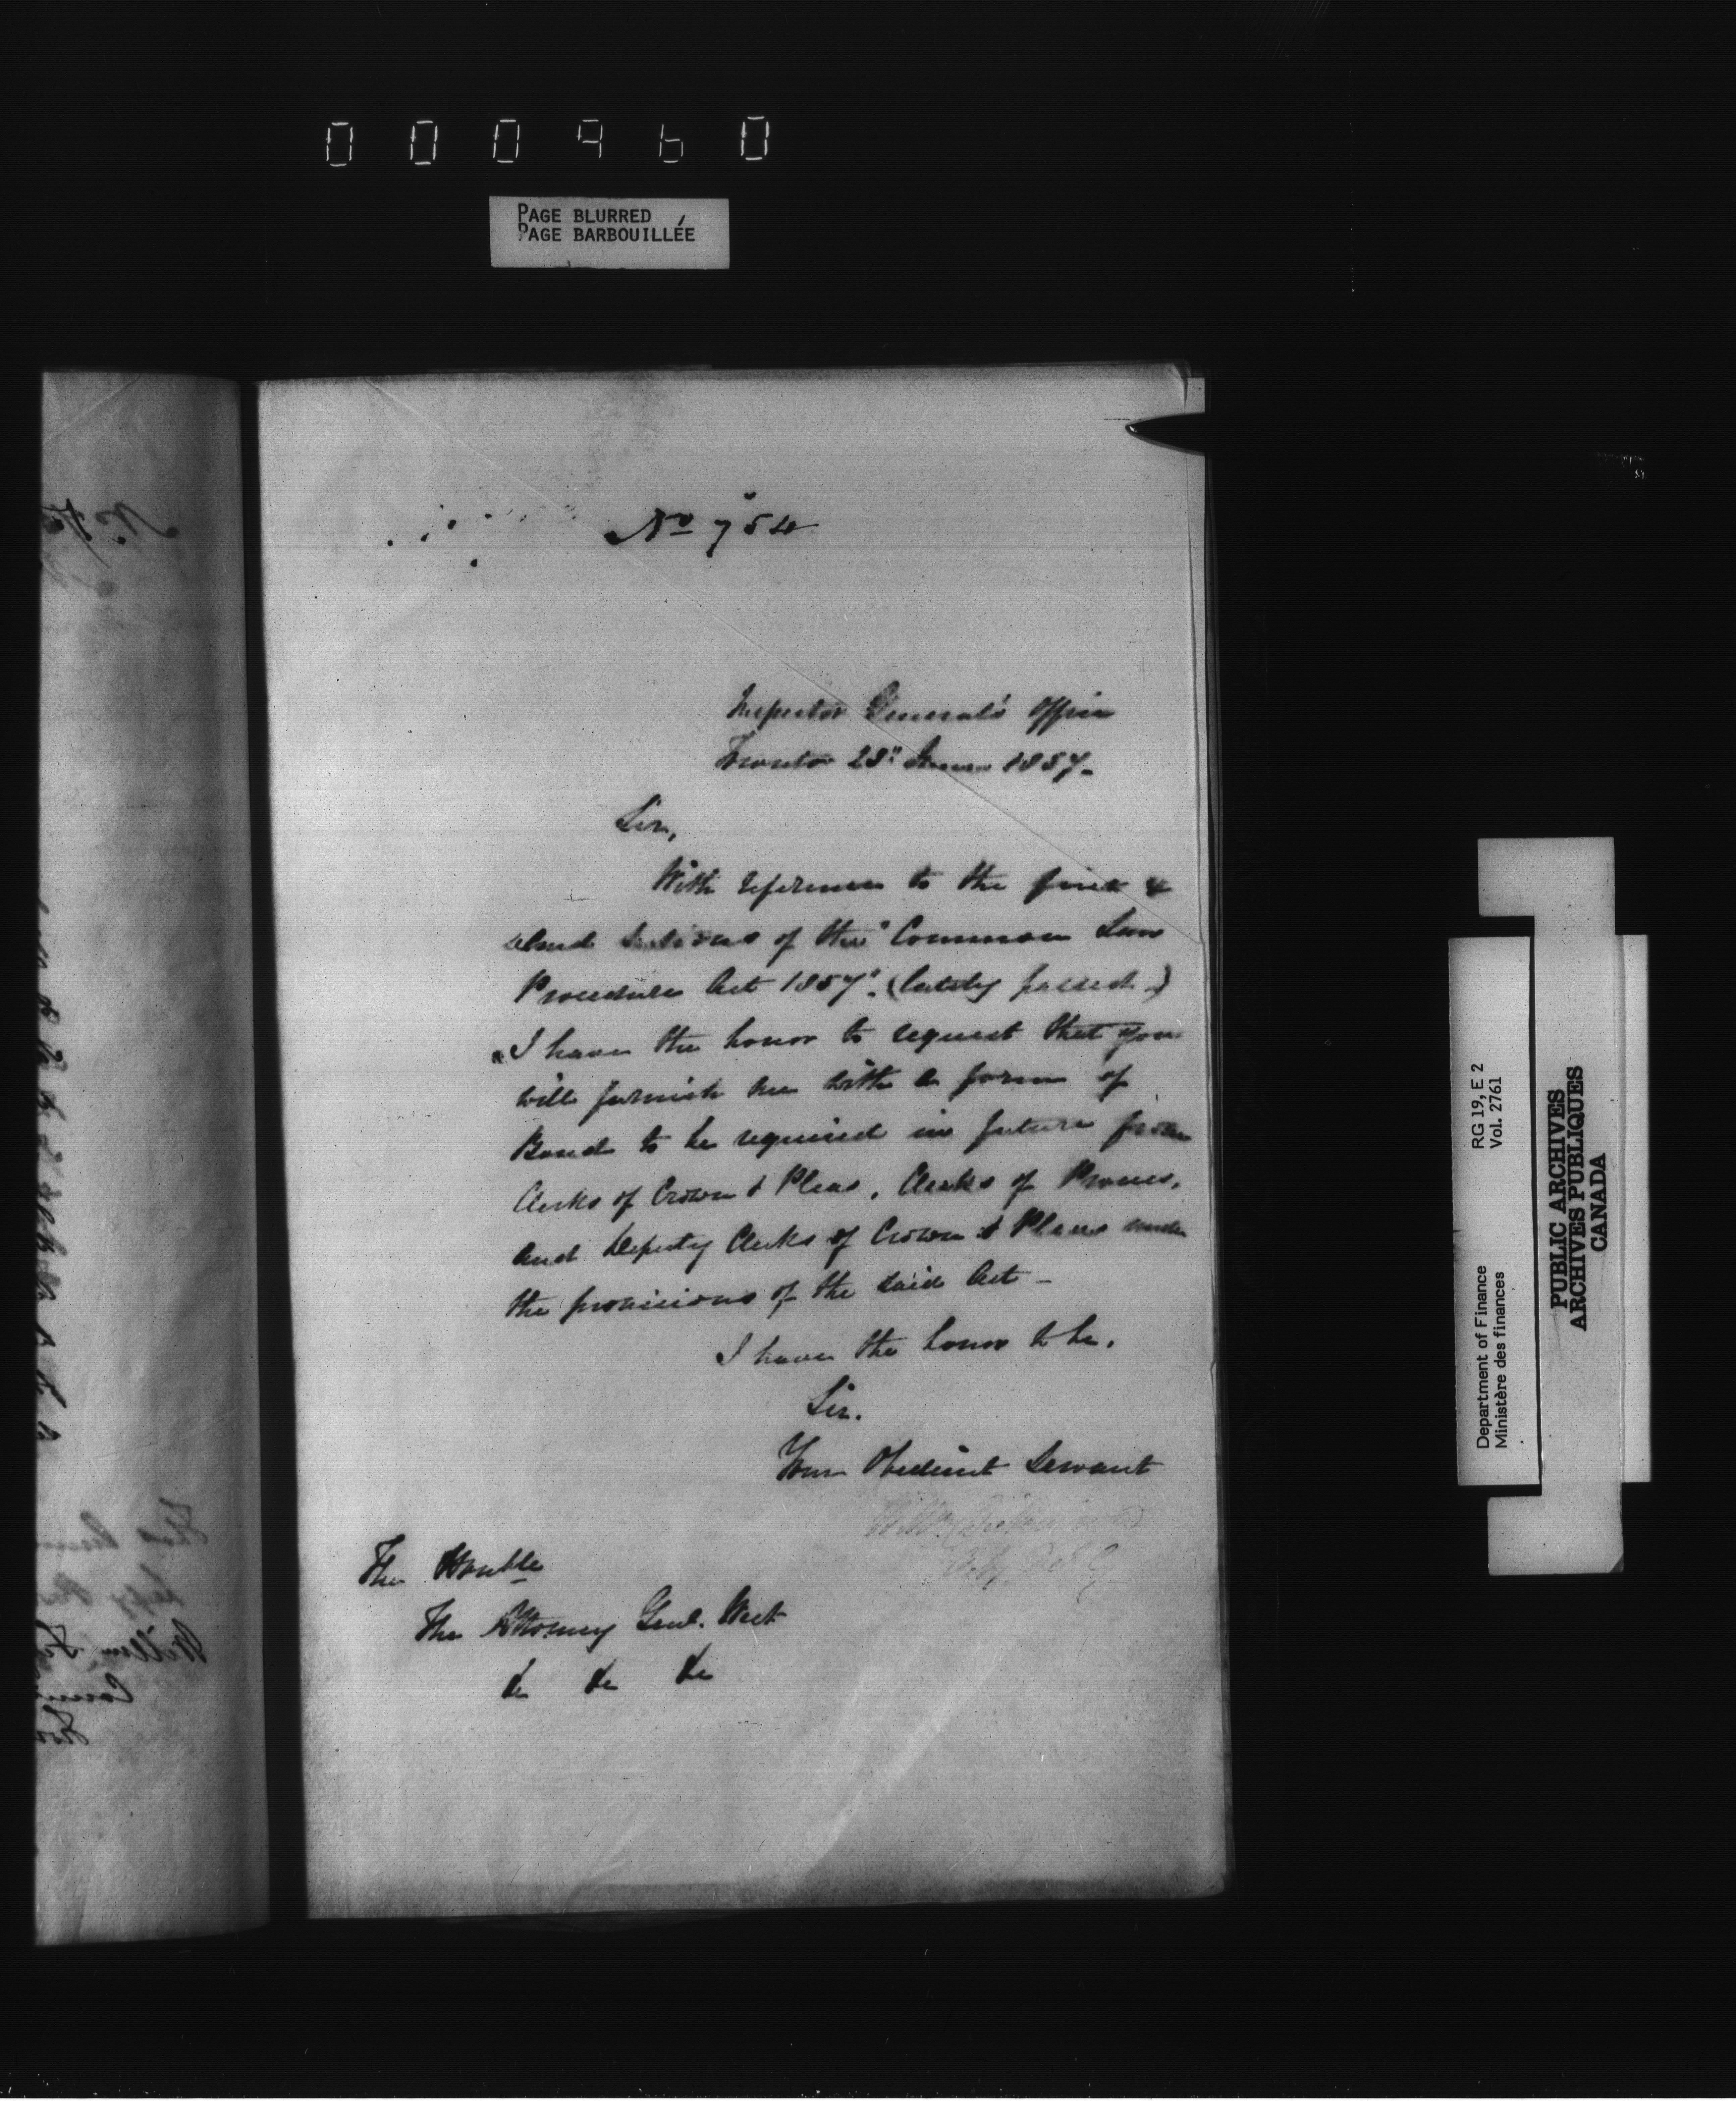 000960
PAGE BLURRED
PAGE BARBOUILLÉE
No 754
Inspector General's Office
Toronto 23" June 1857.
Sir,
With reference to the first &
second sections of the "Common Law
Procedure Act 1857". (lately passed)
I have the honor to request that you
will furnish me with a form of
Bond to be required in future from
Clerks of Crown & Pleas, Clerks of Process,
and Deputy Clerks of Crown & Pleas under
the provisions of the said Act -
I have the honor to be,
Sir.
Your Obedient Servant
The Honble
The Attorney Genl. West
&c &c &c
Department of Finance RG 19, E 2
Ministère des finances Vol. 2761
PUBLIC ARCHIVES
ARCHIVES PUBLIQUES
CANADA